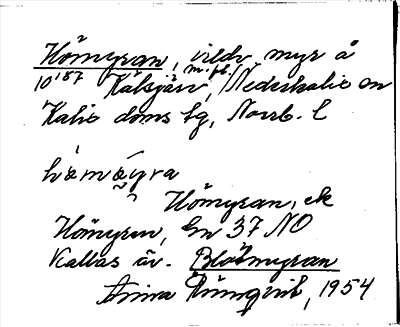 Hömyran, vildv. myr å
10'87 Kälsjärv, m.fl. Nederkalix sn
Kalix doms lg, Norrb. l
hö̀mýra
Hömyran, ek
Hömyren, Gn 37 NO
Kallas äv. Blötmyran
Anna 1954